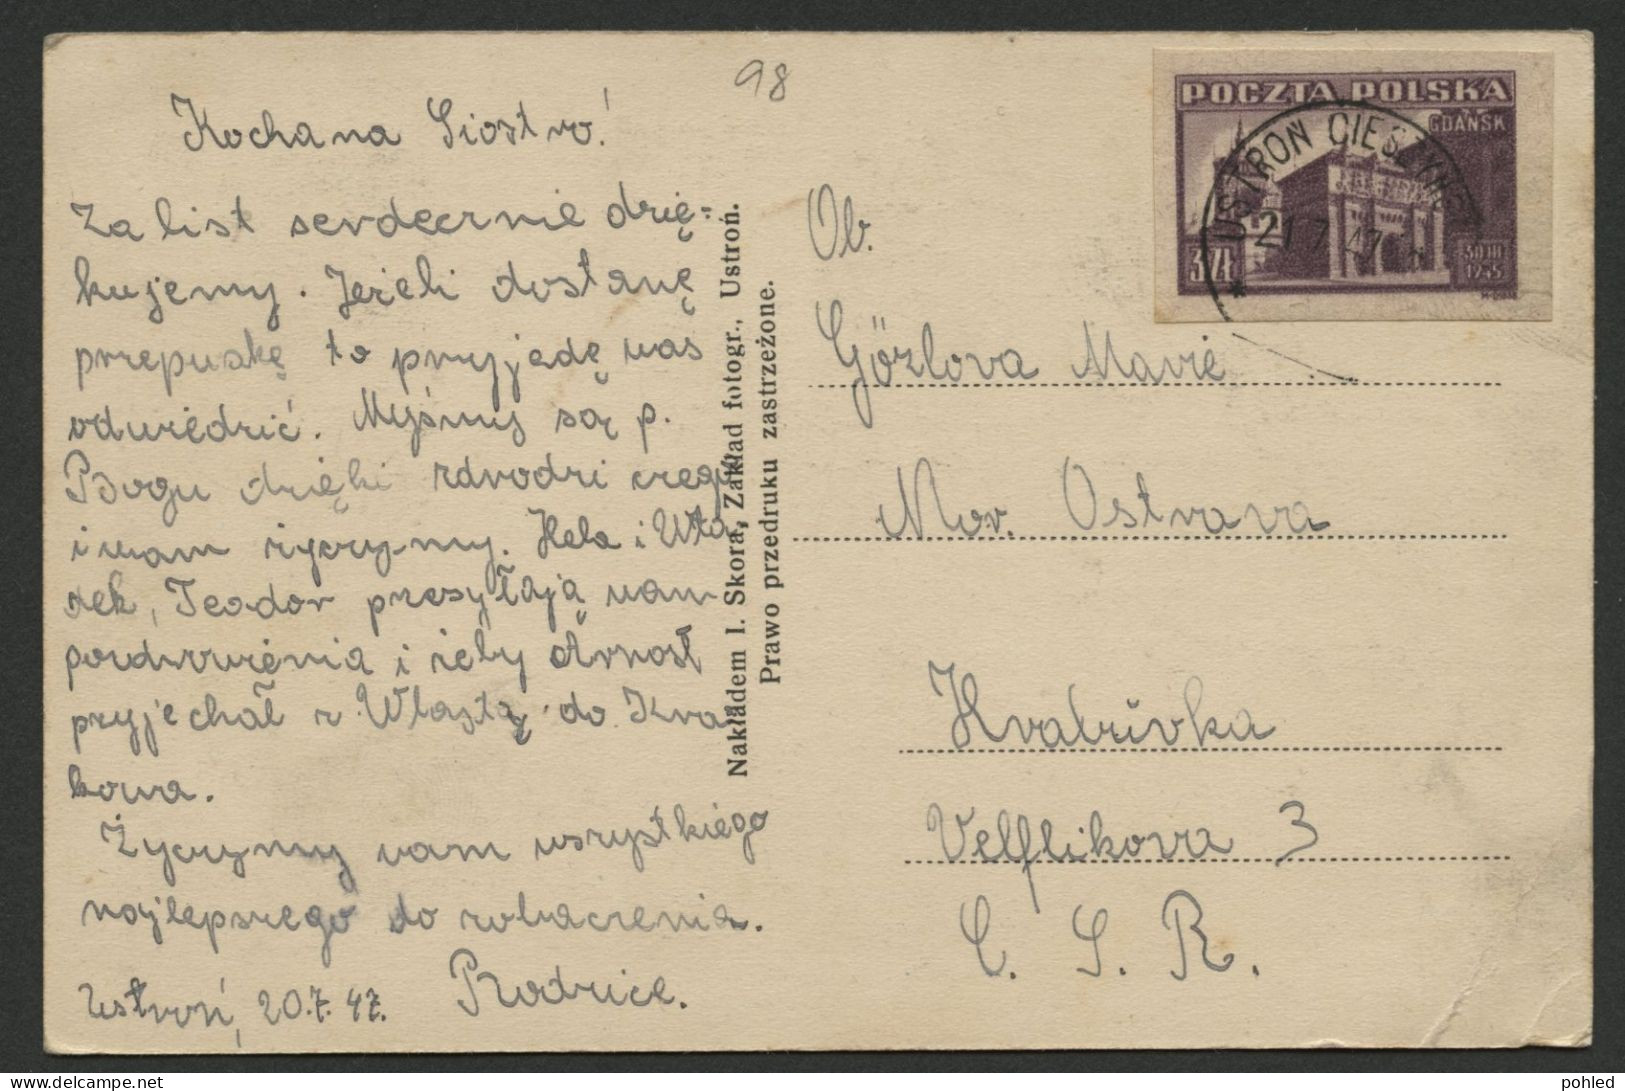 98
Kochana Siostro!
Za list serdecznie dzię=
kujemy. Jeżeli dostanę
przepuskę to przyjedę was
odwiedzić. Myśmy są p.
Bogu dzięki zdrodzi czego
i wam życzymy. Hela i Wła
dek, Teodor przesyłają wam
pozdrowienia i żeby Arnost
przyjechał z Wlastą do Kra
kowa.
Życzymy vam wszystkiego
najlepszego do zobaczenia.
Ustroń, 20.7.47. Rodzice.
Nakładem I. Skora, Zakład fotogr., Ustroń.
Prawo przedruku zastrzeżone.
POCZTA POLSKA
GDAŃSK
3 ZŁ
30 III
1945
USTROŃ CIESZYŃSKI
21 7 47
Ob.
Görlova Marie
Mor. Ostrava
Hrabůvka
Velflikova 3
Č. S. R.
pohled